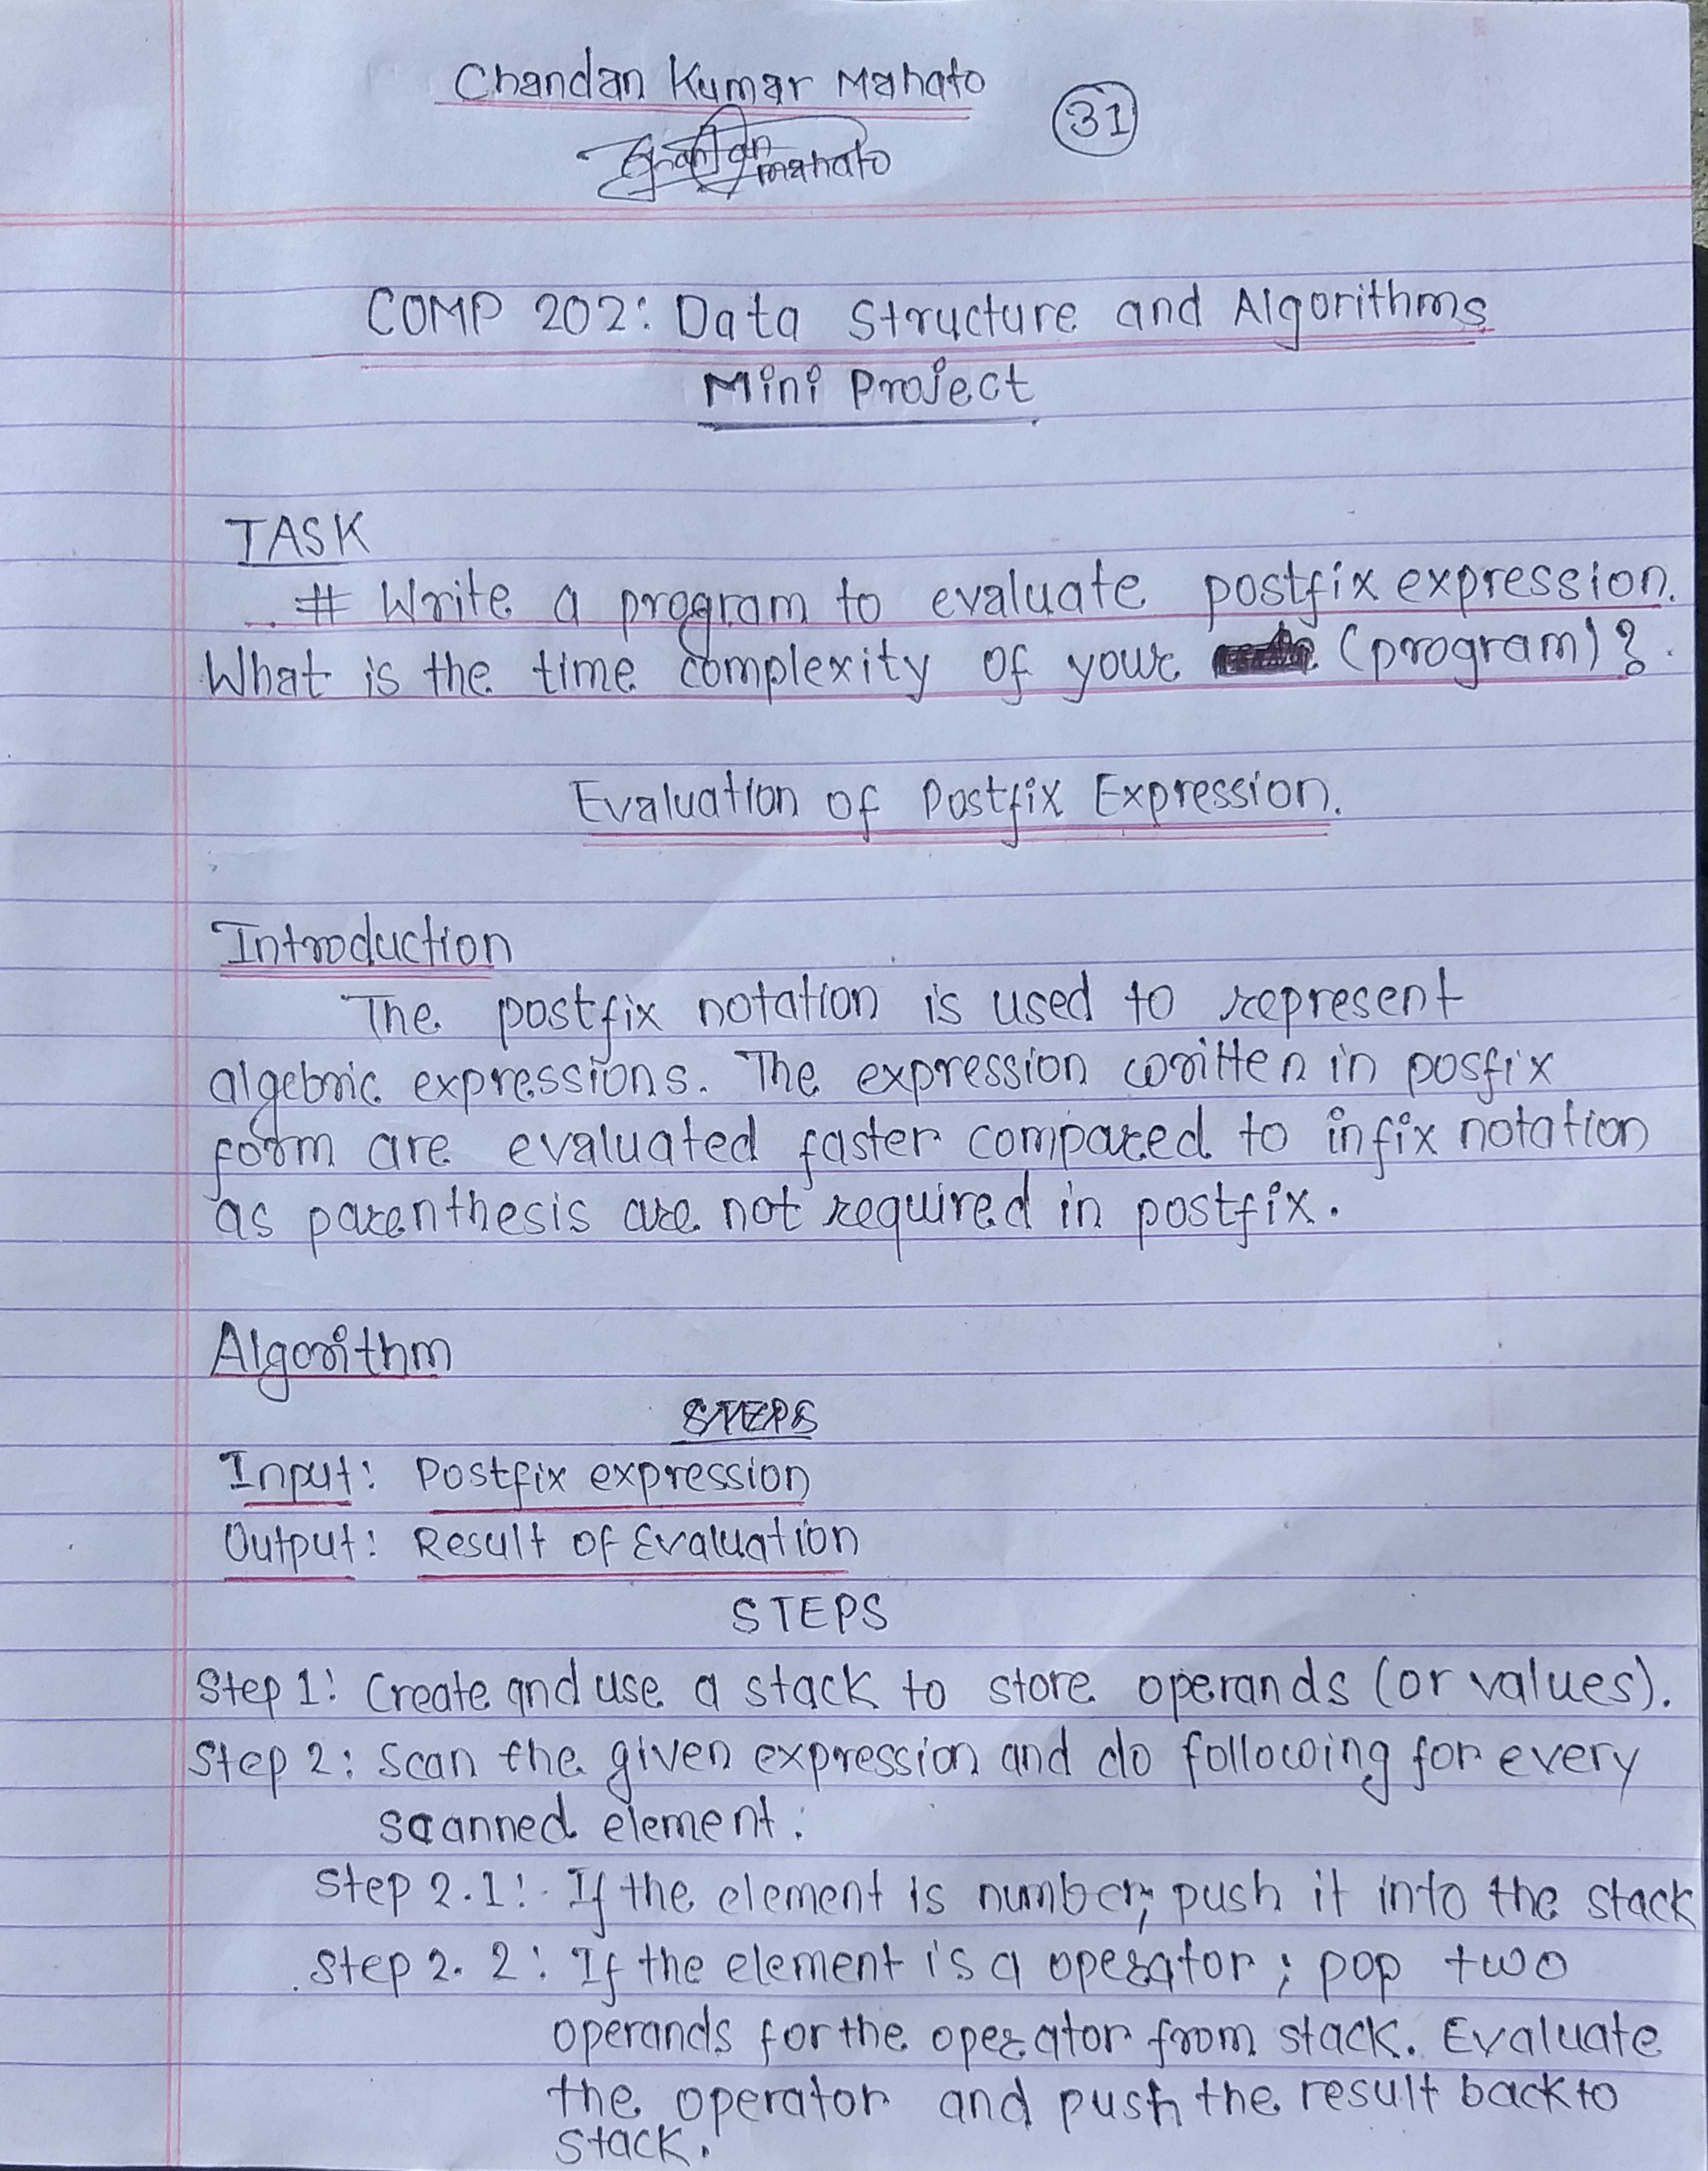 Chandan Kumar Mahato
31
Chandan
mahato
COMP 202: Data Structure and Algorithms
Mini Project
TASK
# Write a program to evaluate postfix expression.
What is the time complexity of your (program)?
Evaluation of Postfix Expression.
Introduction
The postfix notation is used to represent
algebric expressions. The expression written in posfix
form are evaluated faster compared to infix notation
as parenthesis are not required in postfix.
Algorithm
STEPS
Input: Postfix expression
Output: Result of Evaluation
STEPS
Step 1: Create and use a stack to store operands (or values).
Step 2: Scan the given expression and do following for every
scanned element:
Step 2.1: If the element is number, push it into the stack
Step 2.2: If the element is a operator; pop two
operands for the operator from stack. Evaluate
the operator and push the result back to
stack.